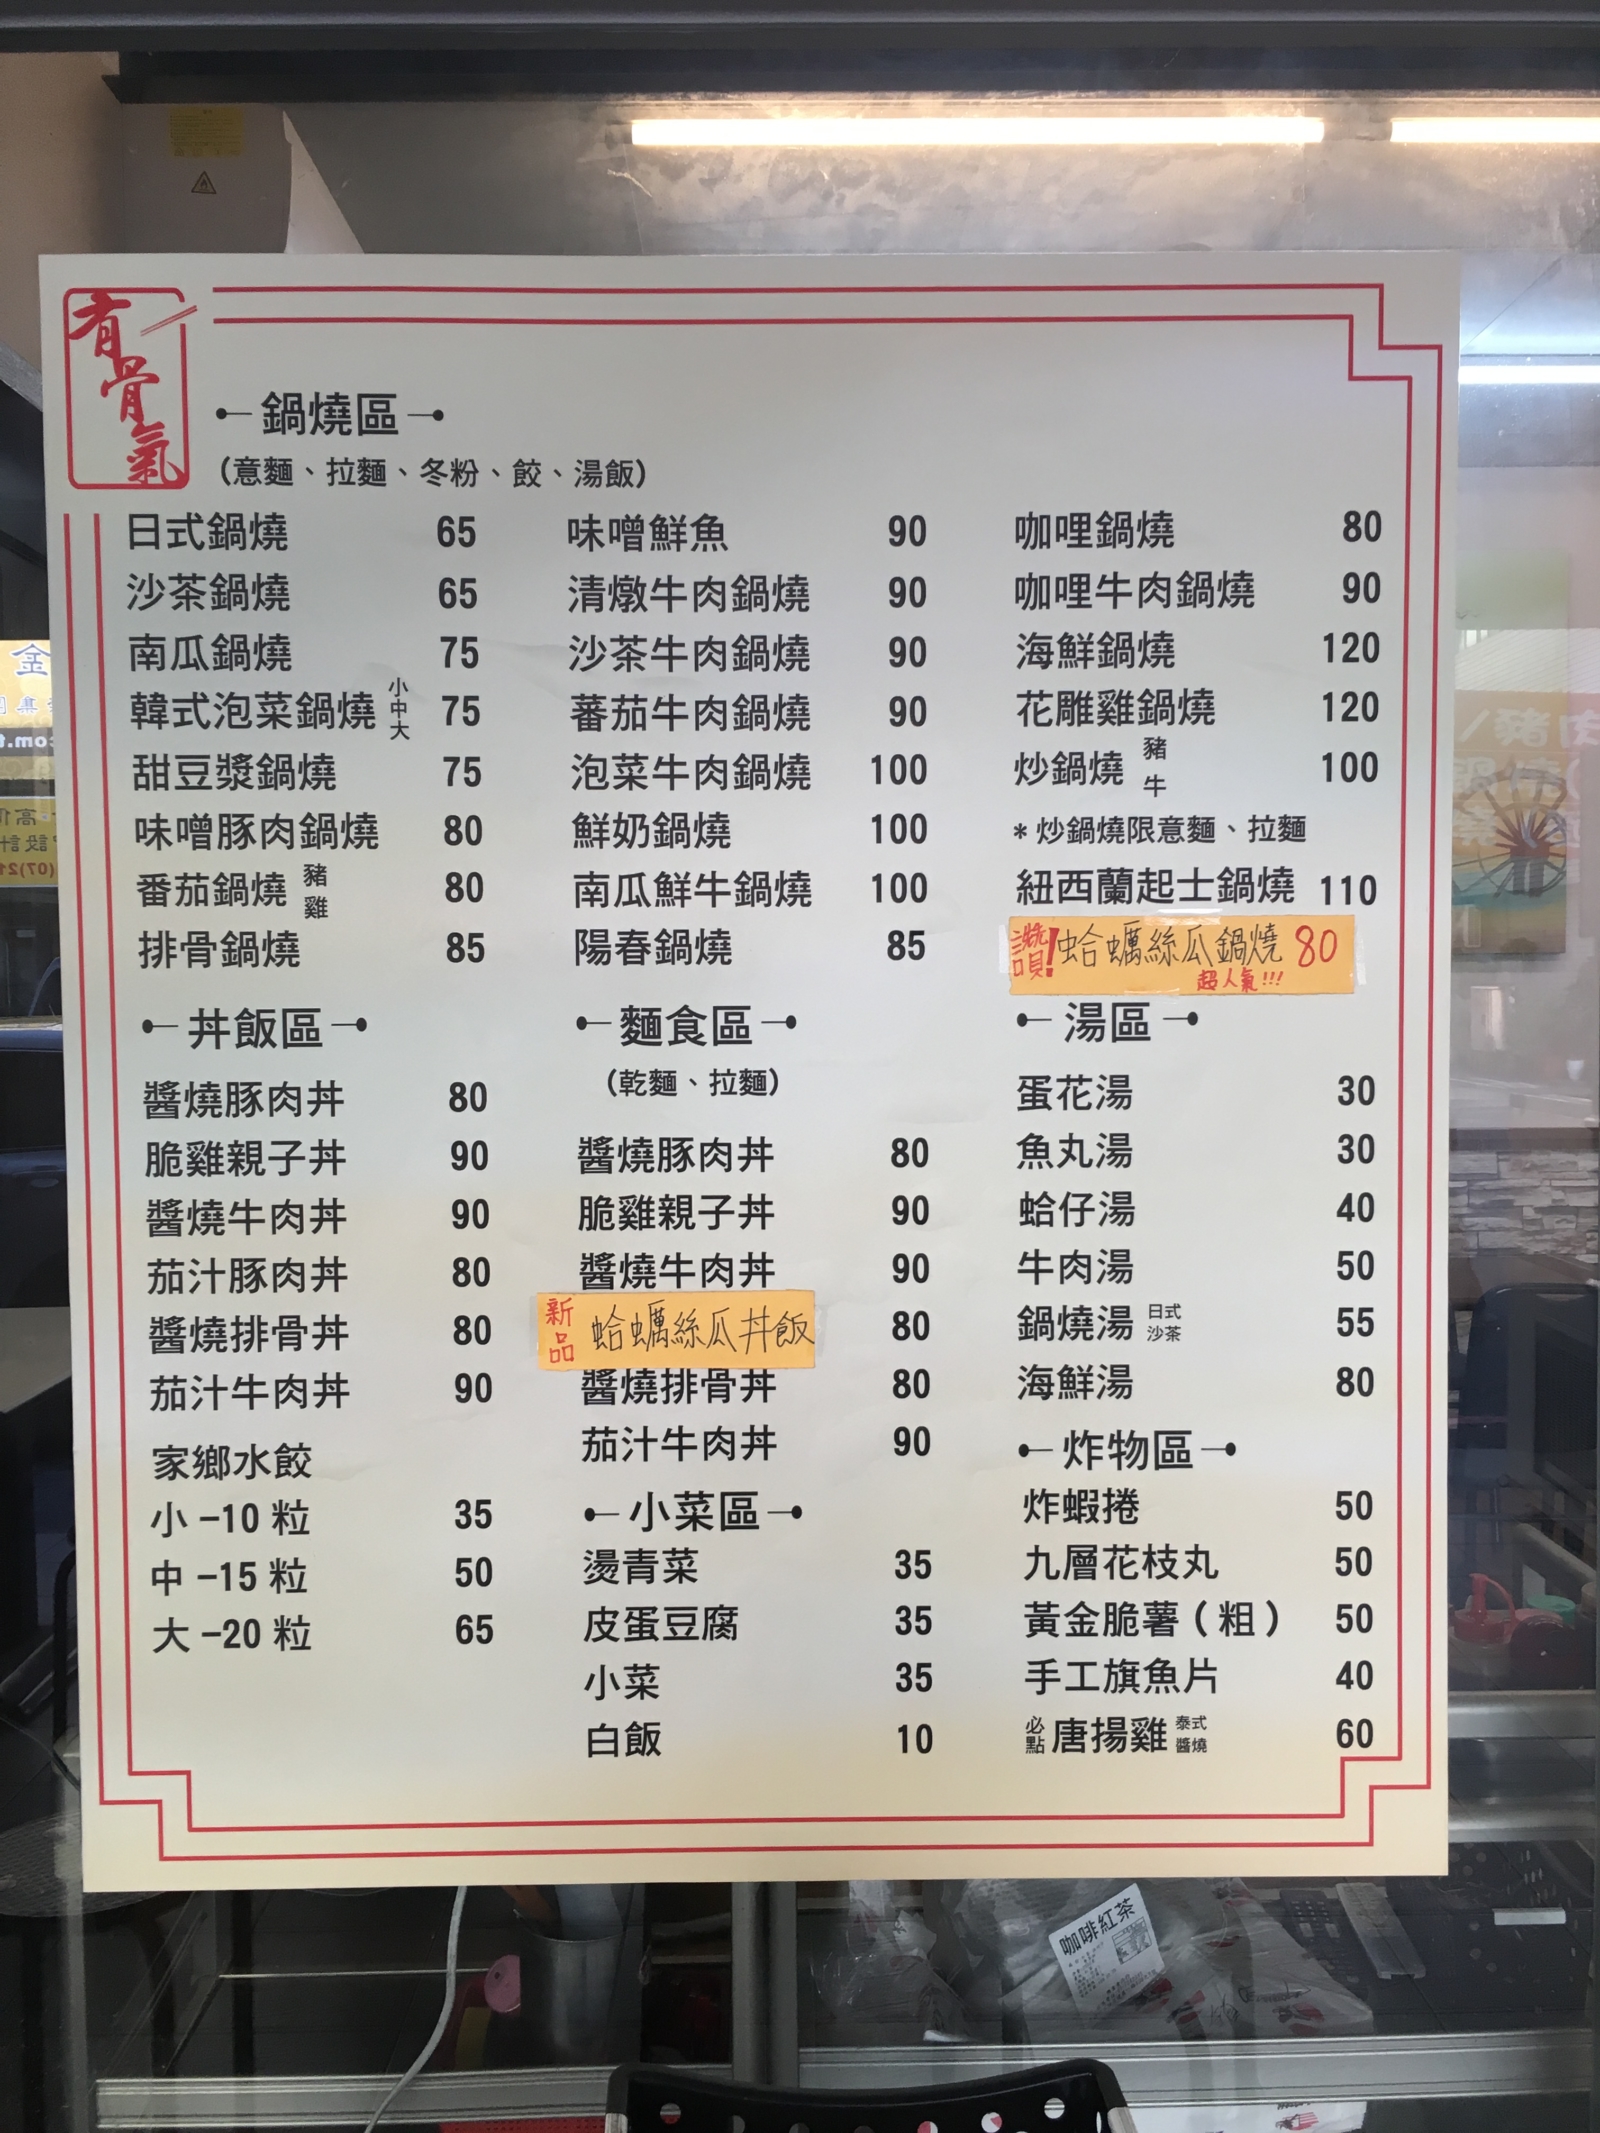 有骨氣
鍋燒區
(意麵、拉麵、冬粉、餃、湯飯)
日式鍋燒 65
沙茶鍋燒 65
南瓜鍋燒 75
韓式泡菜鍋燒 小中大 75
甜豆漿鍋燒 75
味噌豚肉鍋燒 80
番茄鍋燒 豬 雞 80
排骨鍋燒 85
味噌鮮魚 90
清燉牛肉鍋燒 90
沙茶牛肉鍋燒 90
蕃茄牛肉鍋燒 90
泡菜牛肉鍋燒 100
鮮奶鍋燒 100
南瓜鮮牛鍋燒 100
陽春鍋燒 85
咖哩鍋燒 80
咖哩牛肉鍋燒 90
海鮮鍋燒 120
花雕雞鍋燒 120
炒鍋燒 豬 牛 100
*炒鍋燒限意麵、拉麵
紐西蘭起士鍋燒 110
讚!蛤蠣絲瓜鍋燒 80
超人氣!!!
丼飯區
醬燒豚肉丼 80
脆雞親子丼 90
醬燒牛肉丼 90
茄汁豚肉丼 80
醬燒排骨丼 80
茄汁牛肉丼 90
家鄉水餃
小 –10 粒 35
中 –15 粒 50
大 –20 粒 65
麵食區
(乾麵、拉麵)
醬燒豚肉丼 80
脆雞親子丼 90
醬燒牛肉丼 90
新品 蛤蠣絲瓜丼飯 80
醬燒排骨丼 80
茄汁牛肉丼 90
小菜區
燙青菜 35
皮蛋豆腐 35
小菜 35
白飯 10
湯區
蛋花湯 30
魚丸湯 30
蛤仔湯 40
牛肉湯 50
鍋燒湯 日式 沙茶 55
海鮮湯 80
炸物區
炸蝦捲 50
九層花枝丸 50
黃金脆薯(粗) 50
手工旗魚片 40
必點 唐揚雞 泰式 醬燒 60
咖啡紅茶